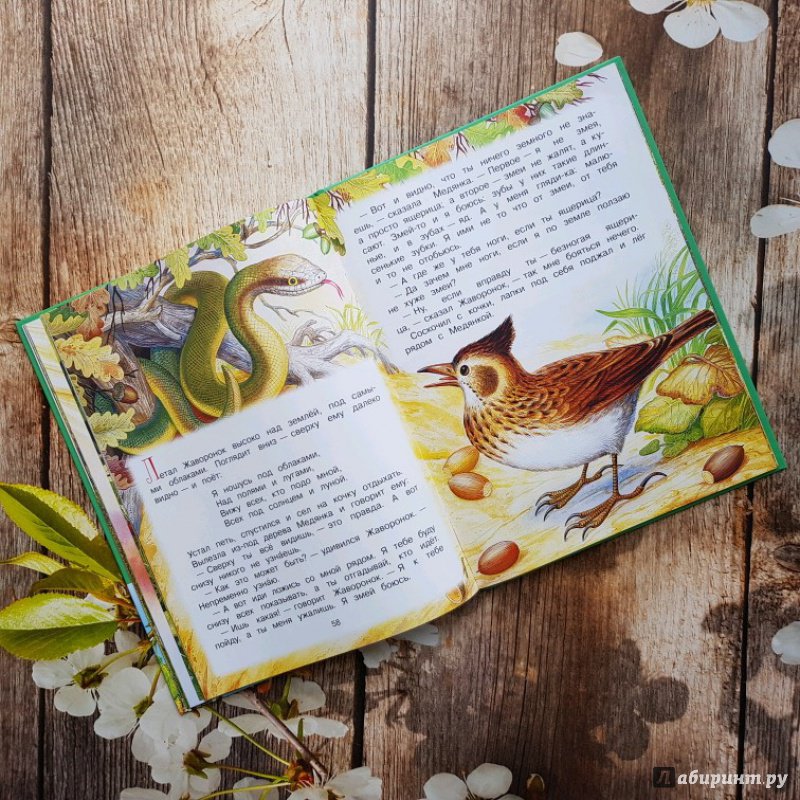 Летал Жаворонок высоко над землёй, под самы-
ми облаками. Поглядит вниз — сверху ему далеко
видно — и поёт:
Я ношусь под облаками,
Над полями и лугами,
Вижу всех, кто подо мной,
Всех под солнцем и луной.
Устал петь, спустился и сел на кочку отдыхать.
Вылезла из-под дерева Медянка и говорит ему:
— Сверху ты всё видишь, — это правда. А вот
снизу никого не узнаешь.
— Как это может быть? — удивился Жаворонок. —
Непременно узнаю.
— А вот иди ложись со мной рядом. Я тебе буду
снизу всех показывать, а ты отгадывай, кто идёт.
— Ишь какая! — говорит Жаворонок. — Я к тебе
пойду, а ты меня ужалишь. Я змей боюсь.
58
— Вот и видно, что ты ничего земного не зна-
ешь, — сказала Медянка. — Первое — я не змея,
а просто ящерица; а второе — змеи не жалят, а ку-
сают. Змей-то и я боюсь: зубы у них такие длин-
ные, и в зубах — яд. А у меня гляди-ка: малю-
сенькие зубки. Я ими не то что от змеи, от тебя
и то не отобьюсь.
— А где же у тебя ноги, если ты ящерица?
— Да зачем мне ноги, если я по земле ползаю
не хуже змеи?
— Ну, если вправду ты — безногая ящери-
ца, — сказал Жаворонок, — так мне бояться нечего.
Соскочил с кочки, лапки под себя поджал и лёг
рядом с Медянкой.
Лабиринт.ру